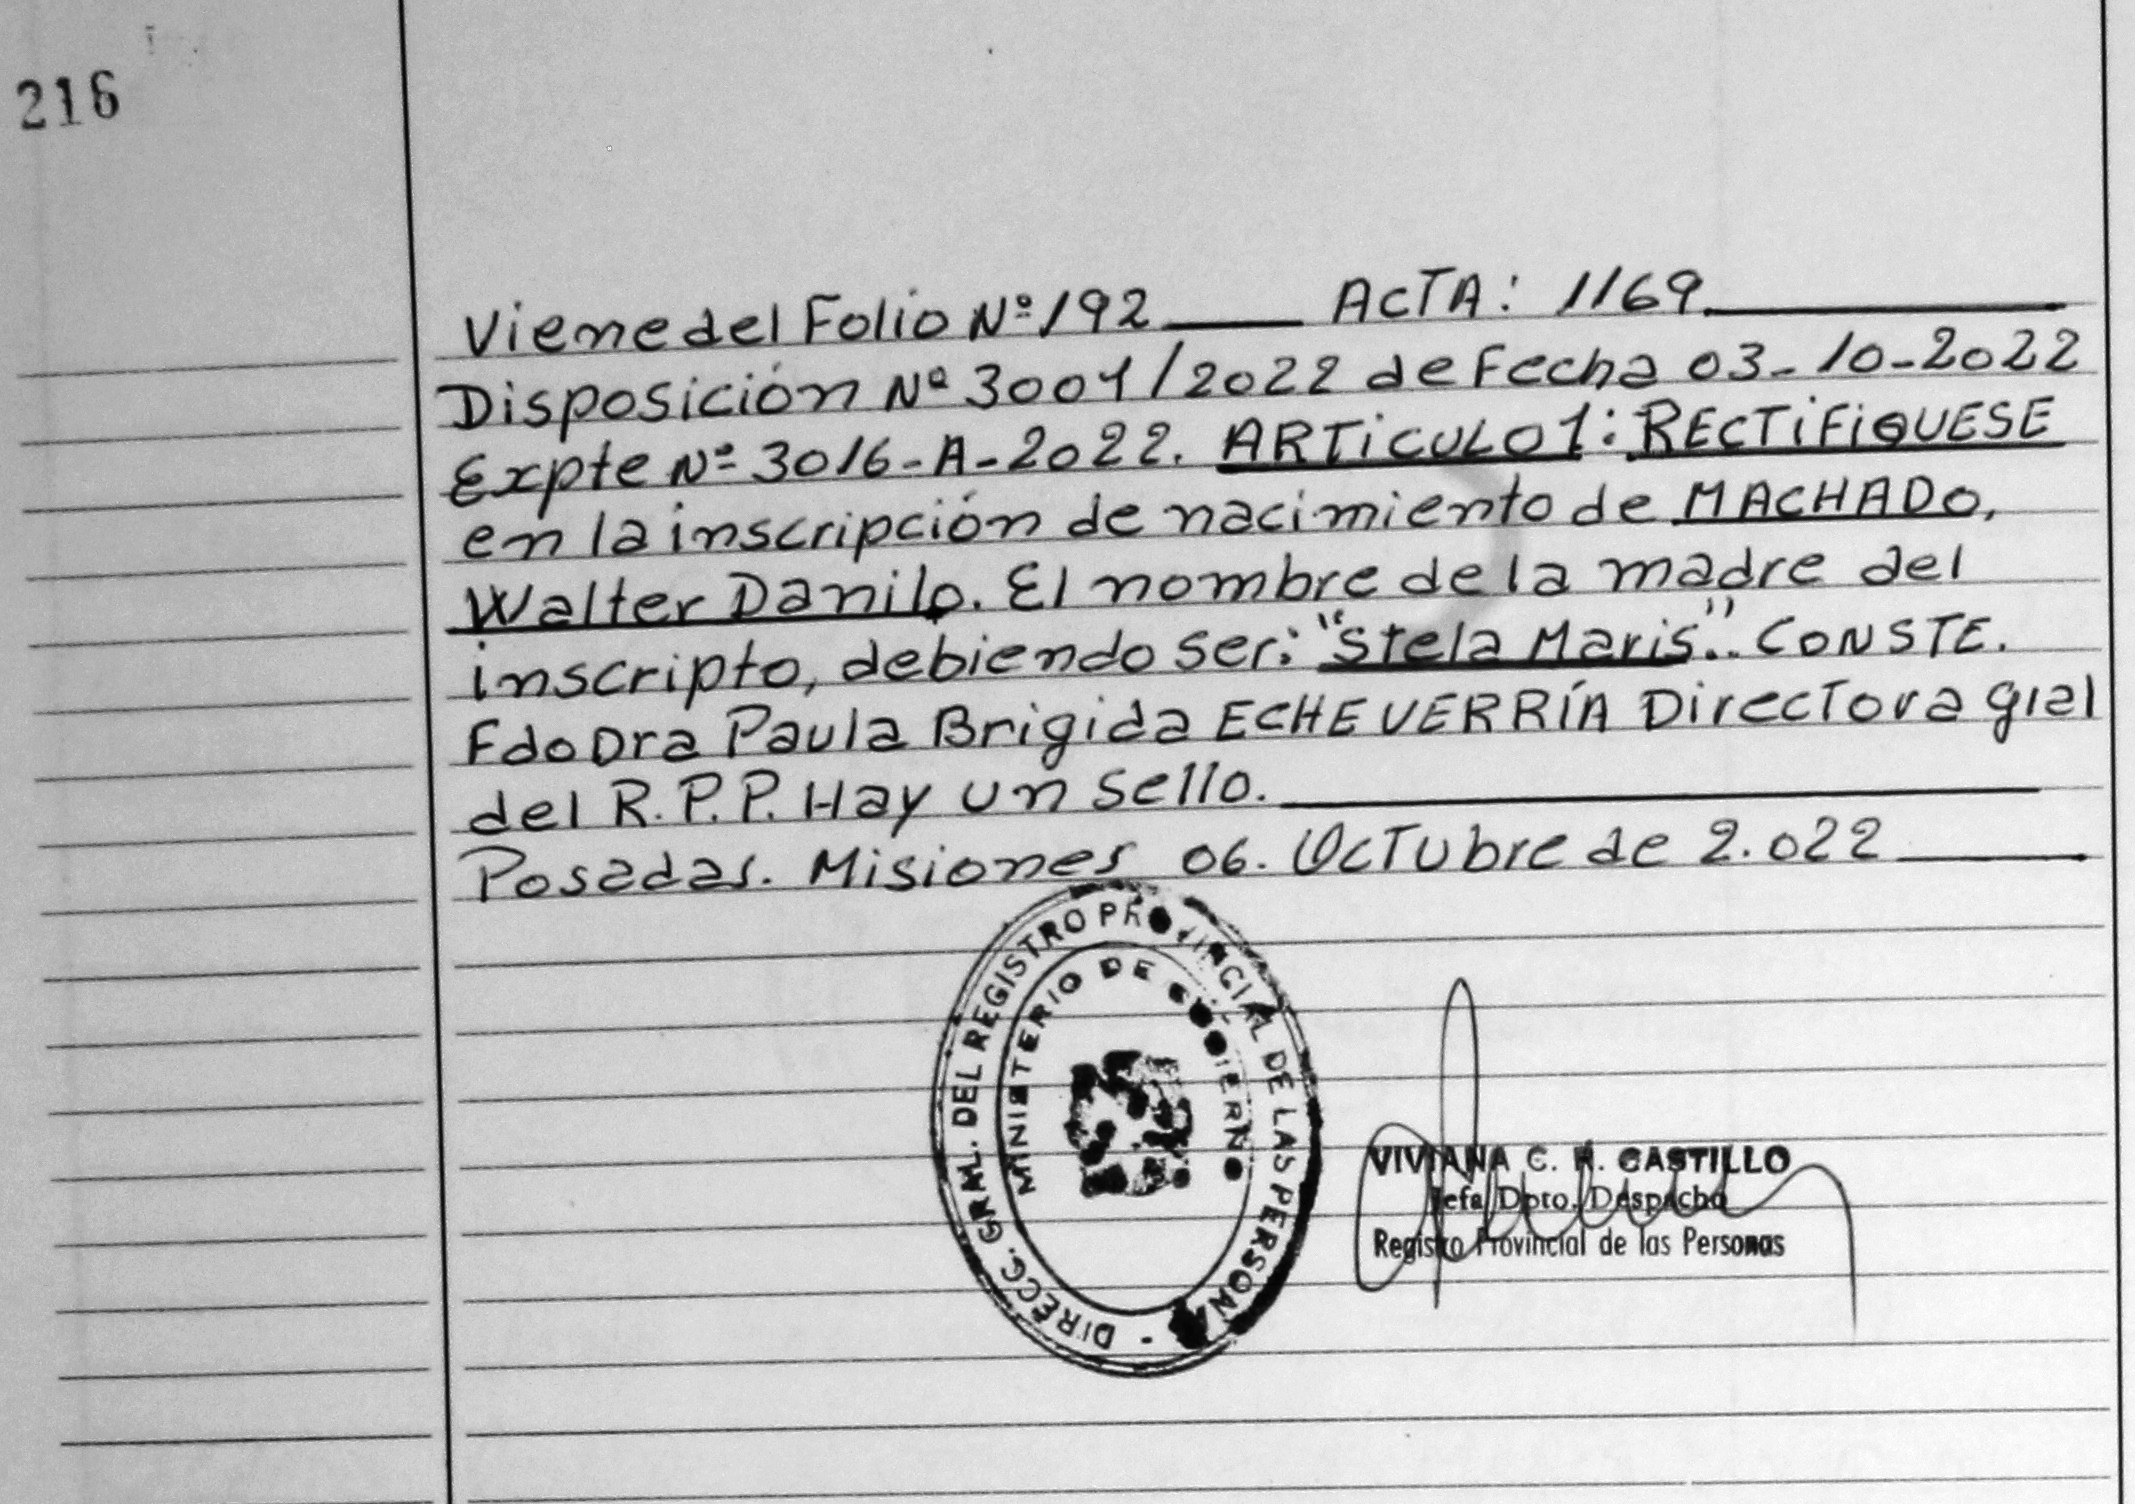 216
Viene del Folio Nº 192 ACTA: 1169
Disposición Nº 3001/2022 de Fecha 03-10-2022
Expte Nº 3016-A-2022. ARTICULO 1: RECTIFIQUESE
en la inscripción de nacimiento de MACHADO,
Walter Danilo. El nombre de la madre del
inscripto, debiendo ser: "Stela Maris". CONSTE.
Fdo Dra Paula Brigida ECHEVERRÍA Directora gral
del R.P.P. Hay un sello.
Posadas. Misiones 06. Octubre de 2.022
DIRECC. GRAL. DEL REGISTRO PROVINCIAL DE LAS PERSONAS -
MINISTERIO DE GOBIERNO
VIVIANA C. H. CASTILLO
Jefa Dpto. Despacho
Registro Provincial de las Personas